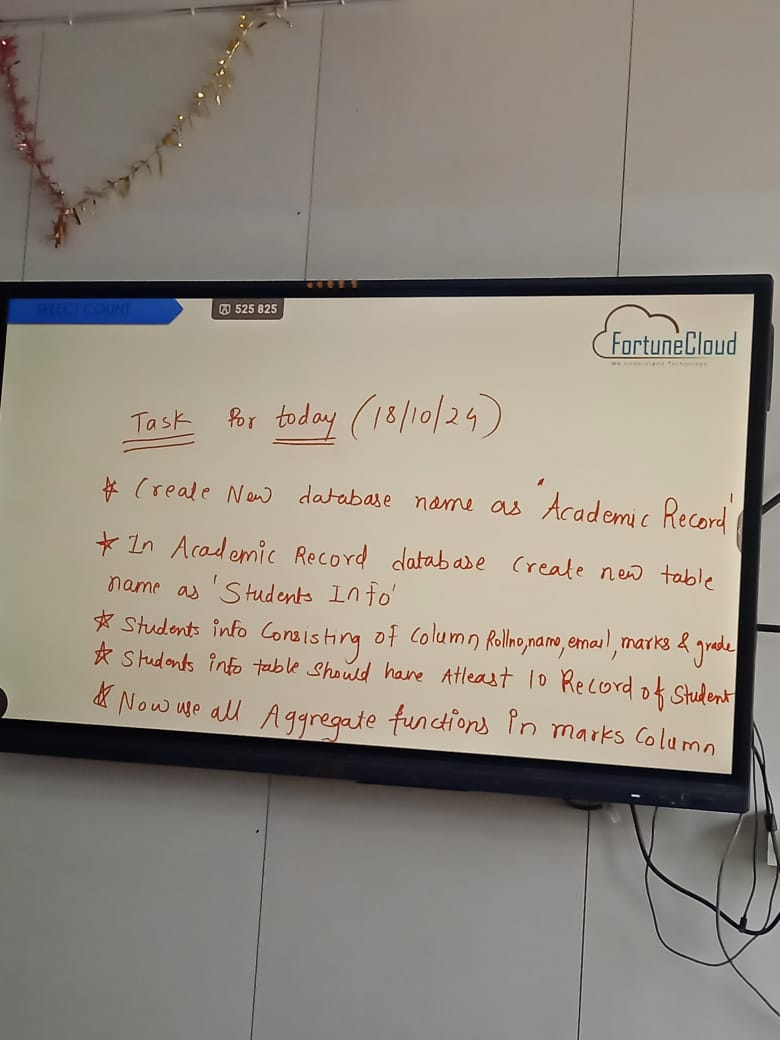 SELECT COUNT
525 825
FortuneCloud
Task for today (18/10/24)
* Create New database name as "Academic Record"
* In Academic Record database create new table
name as 'Students Info'
* Students info Consisting of Column Rollno, name, email, marks & grade
* Students info table Should have Atleast 10 Record of Student
* Now use all Aggregate functions in marks Column